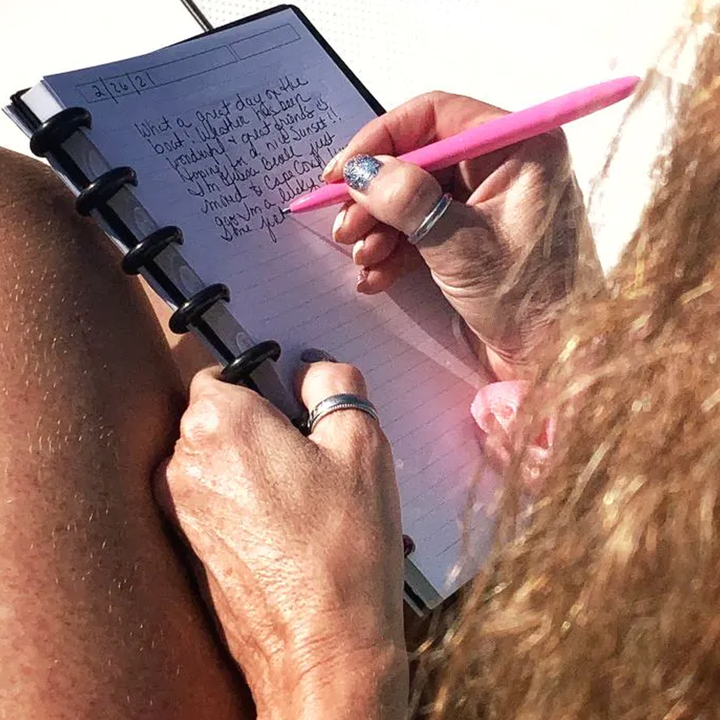 2/26/21
What a great day on the
boat! Weather has been
wonderful & great friends &
Hoping for a nice sunset!!
I'm Julie Beall just
moved to Cape Coral
ago I'm a lucky
Some